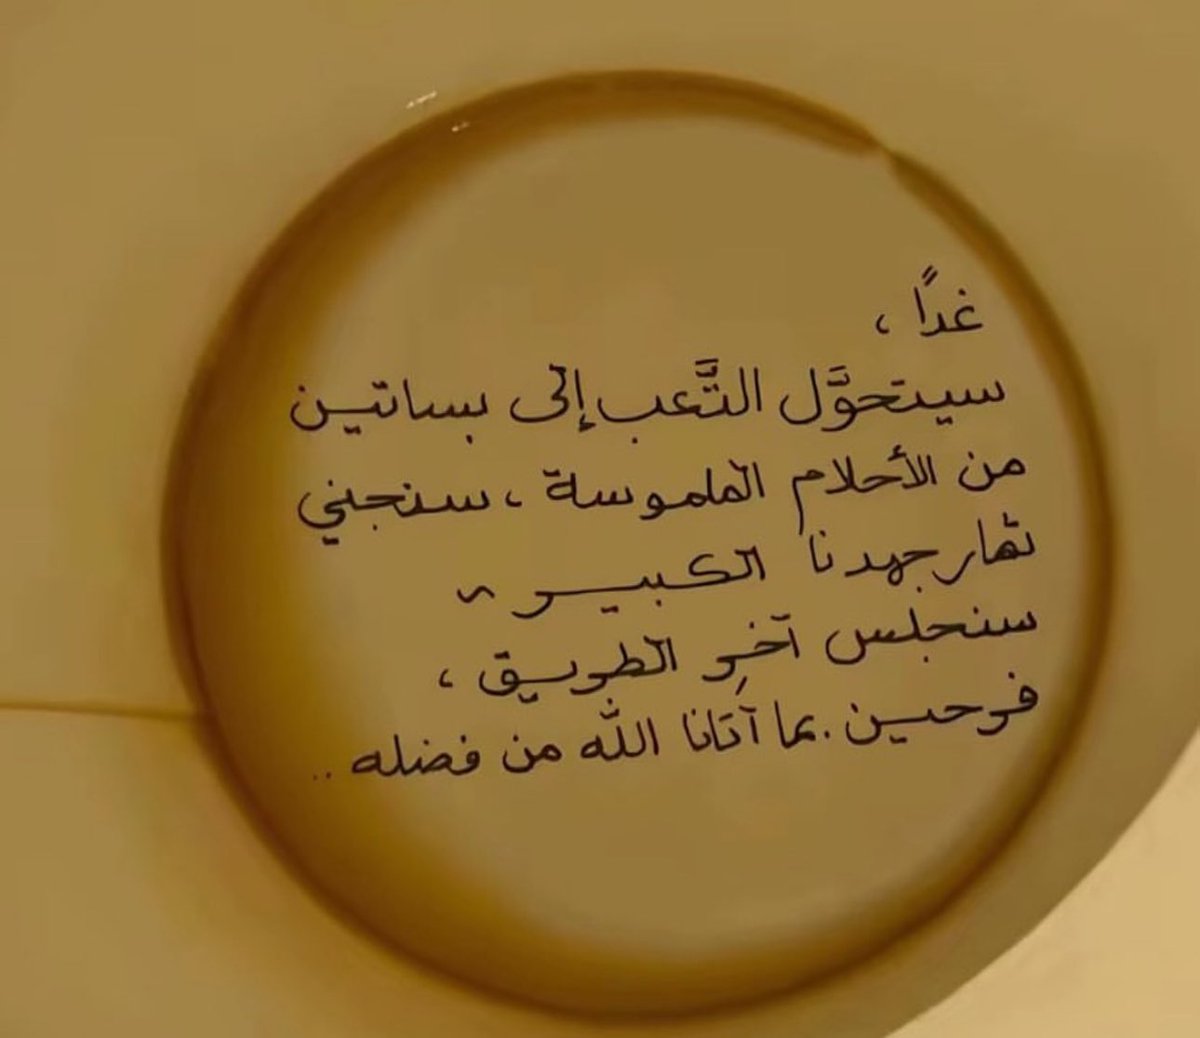 غدًا ،
سيتحوَّل التَّعب إلى بساتين
من الأحلام الملموسة ، سنجني
ثمار جهدنا الكبير ~
سنجلس آخرِ الطريق ،
فرحين بما آتانا الله من فضله ..